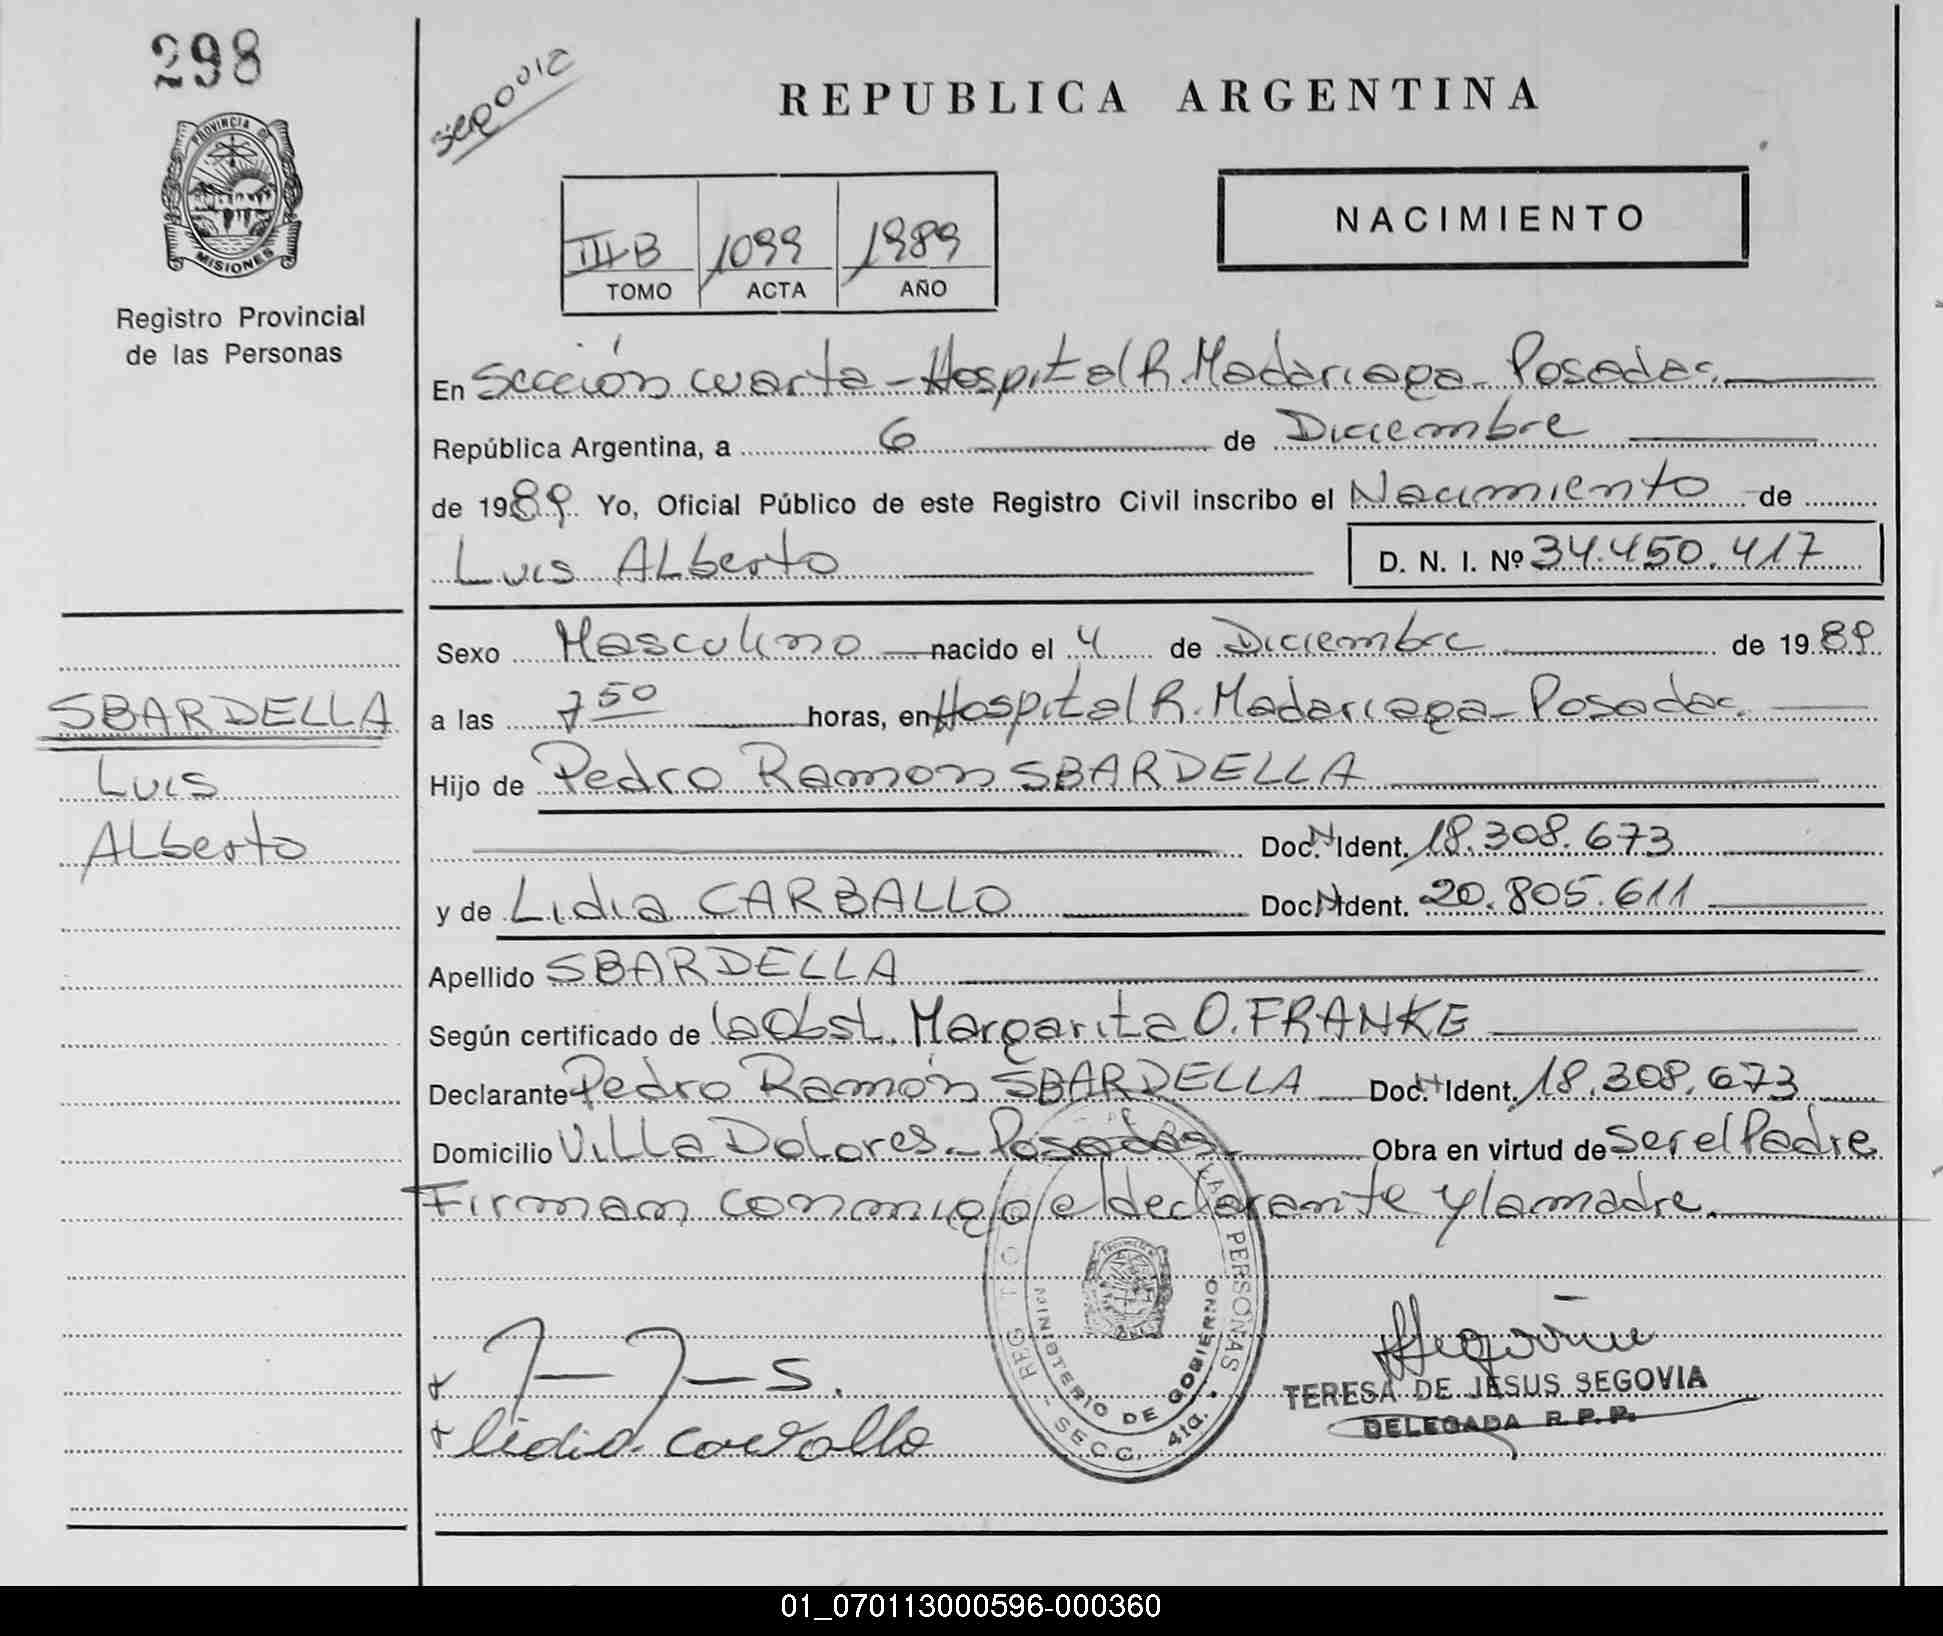 298
PROVINCIA DE
MISIONES
Registro Provincial
de las Personas
REPUBLICA ARGENTINA
III B 1099 1989
TOMO ACTA AÑO
NACIMIENTO
En Sección cuarta - Hospital R. Madariaga - Posadas.
República Argentina, a 6 de Diciembre
de 1989. Yo, Oficial Público de este Registro Civil inscribo el Nacimiento de
Luis ALberto D. N. I. Nº 34.450.417
Sexo Masculino nacido el 4 de Diciembre de 1989
a las 7 50 horas, en Hospital R. Madariaga - Posadas.
Hijo de Pedro Ramon SBARDELLA
Doc. N Ident. 18.308.673
y de Lidia CARBALLO Doc. N Ident. 20.805.611
Apellido SBARDELLA
Según certificado de la Obst. Margarita O. FRANKE
Declarante Pedro Ramón SBARDELLA Doc. N Ident. 18.308.673
Domicilio ViLLa DoLores - Posadas - Obra en virtud de ser el Padre
Firman conmigo el declarante y la madre.
SBARDELLA
Luis
ALberto
REG
PERSONAS
MINISTERIO DE GOBIERNO
- SECC. 4ta.
lidia carvallo
Segovia
TERESA DE JESUS SEGOVIA
DELEGADA R.P.P.
01_070113000596-000360